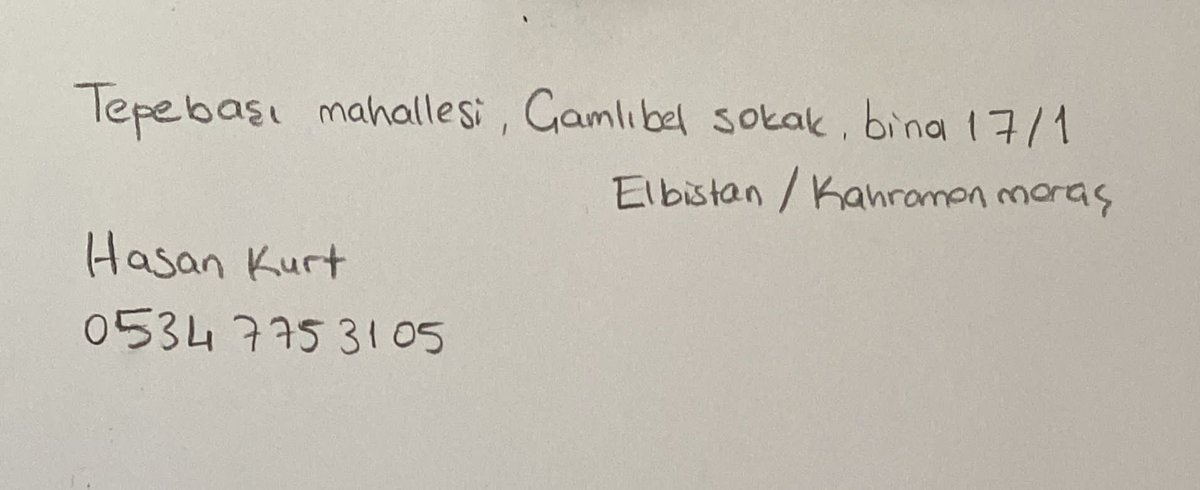 Tepebaşı mahallesi, Gamlıbel sokak, bina 17/1
Elbistan / Kahramanmaraş
Hasan Kurt
0534 775 3105